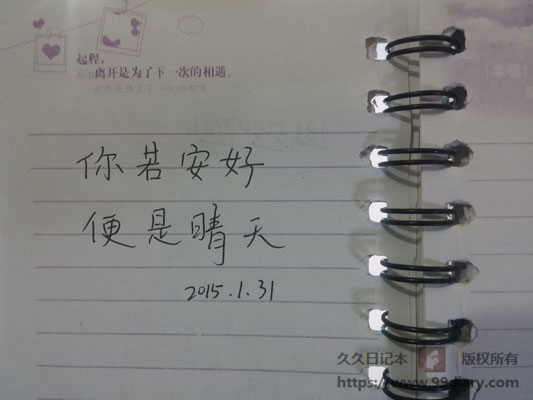 起程,
离开是为了下一次的相遇。
离开是为了下一次的相遇
你若安好
便是晴天
2015.1.31
久久日记本 版权所有
https://www.99diary.com